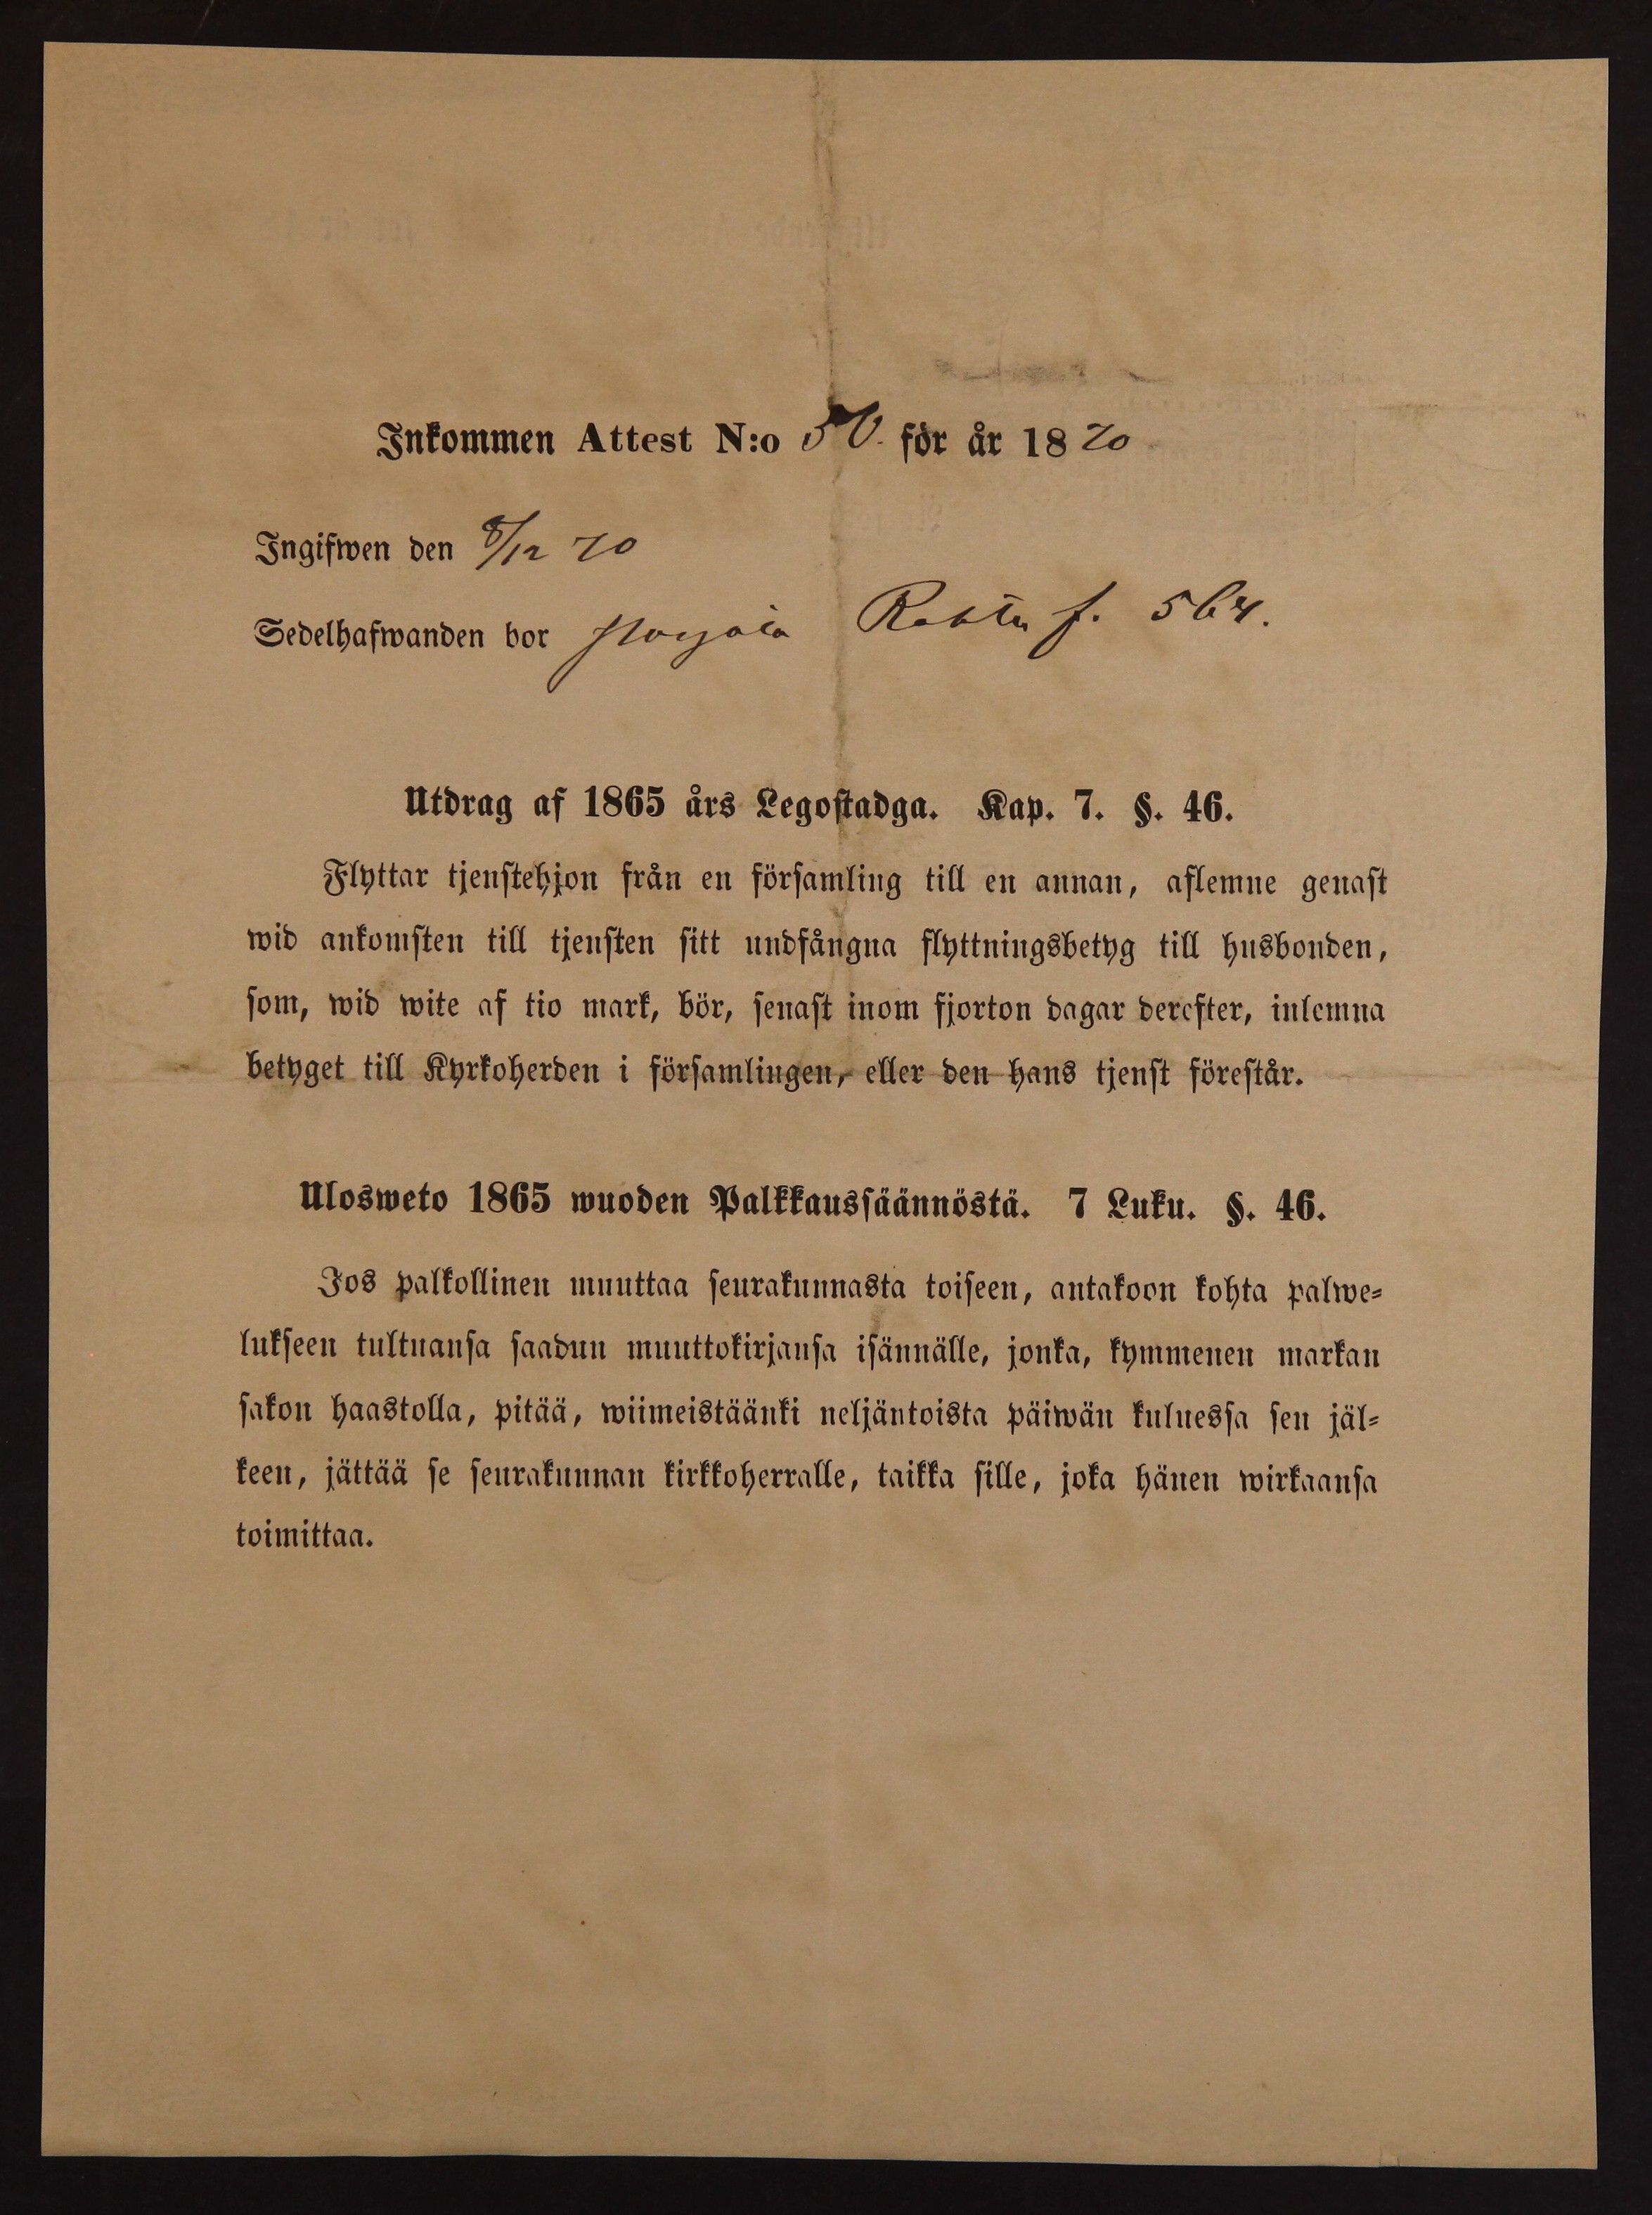 Inkommen Attest N:o 50. för år 1870
Ingifwen den 8/12 70
Sedelhafwanden bor f. 564.
Utdrag af 1865 års Legostadga. Kap. 7. §. 46.
Flyttar tjenstehjon från en församling till en annan, aflemne genast
wid ankomsten till tjensten sitt undfångna flyttningsbetyg till husbonden,
som, wid wite af tio mark, bör, senast inom fjorton dagar derefter, inlemna
betyget till Kyrkoherden i församlingen, eller den hans tjenst förestår.
Ulosweto 1865 wuoden Palkkaussäännöstä. 7 Luku. §. 46.
Jos palkollinen muuttaa seurakunnasta toiseen, antakoon kohta palwe-
lukseen tultuansa saadun muuttokirjansa isännälle, jonka, kymmenen markan
sakon haastolla, pitää, wiimeistäänki neljäntoista päiwän kuluessa sen jäl-
keen, jättää se seurakunnan kirkkoherralle, taikka sille, joka hänen wirkaansa
toimittaa.